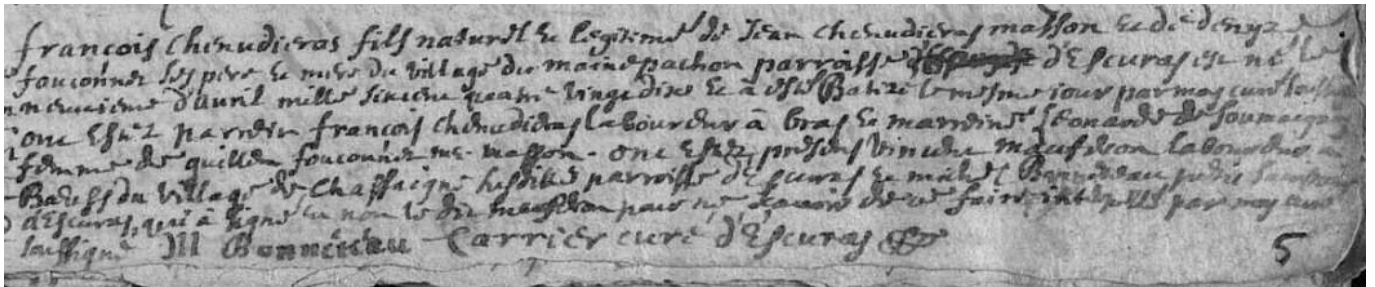 françois Chenudieras fils naturel et legitime de Jean Chenudieras masson et de denyze
fouconnet ses pere et mere du village du maine pachon parroisse d'Escuras est né le
neuvieme d'auril mille six cens quatre vingt dix et a esté Batizé le mesme iour par moy curé
ont Esté parrein françois Chenudieras laboureur à bras et marreine Leonarde de
femme de fouconnet me. masson. ont Esté presens maufdeon laboureur a
Batess du village de Chassaigne parroisse d'Escuras et michel Bonniteau
d'Escuras, qui a signé et non le dit maufdeon pour ne sçavoir de ce faire interpellé par moy curé
soussigné M Bonniteau Carrier curé d'Escuras
5